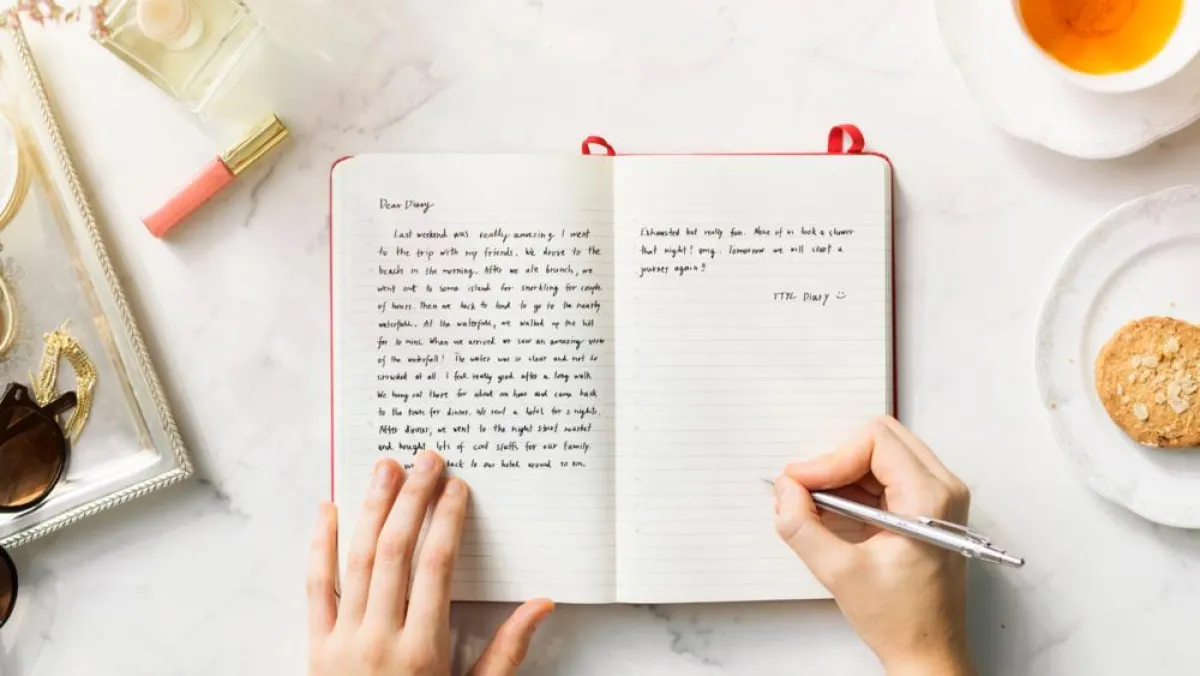 Dear Diary
Last weekend was really amazing. I went
to the trip with my friends. We drove to the
beach in the morning. After we ate brunch, we
went out to some island for snorkling for couple
of hours. Then we back to land to go to the nearby
waterfall. At the waterfall, we walked up the hill
for 30 mins. When we arrived we saw an amazing view
of the waterfall! The water was so clear and not so
crowded at all. I feel really good after a long walk.
We hang out there for about an hour and came back
to the town for dinner. We rent a hotel for 2 nights.
After dinner, we went to the night street market
and bought lots of cool stuffs for our family.
back to our hotel around 10 pm.
Exhausted but really fun. None of us took a shower
that night! omg. Tomorrow we will start a
journey again!
TTYL Diary